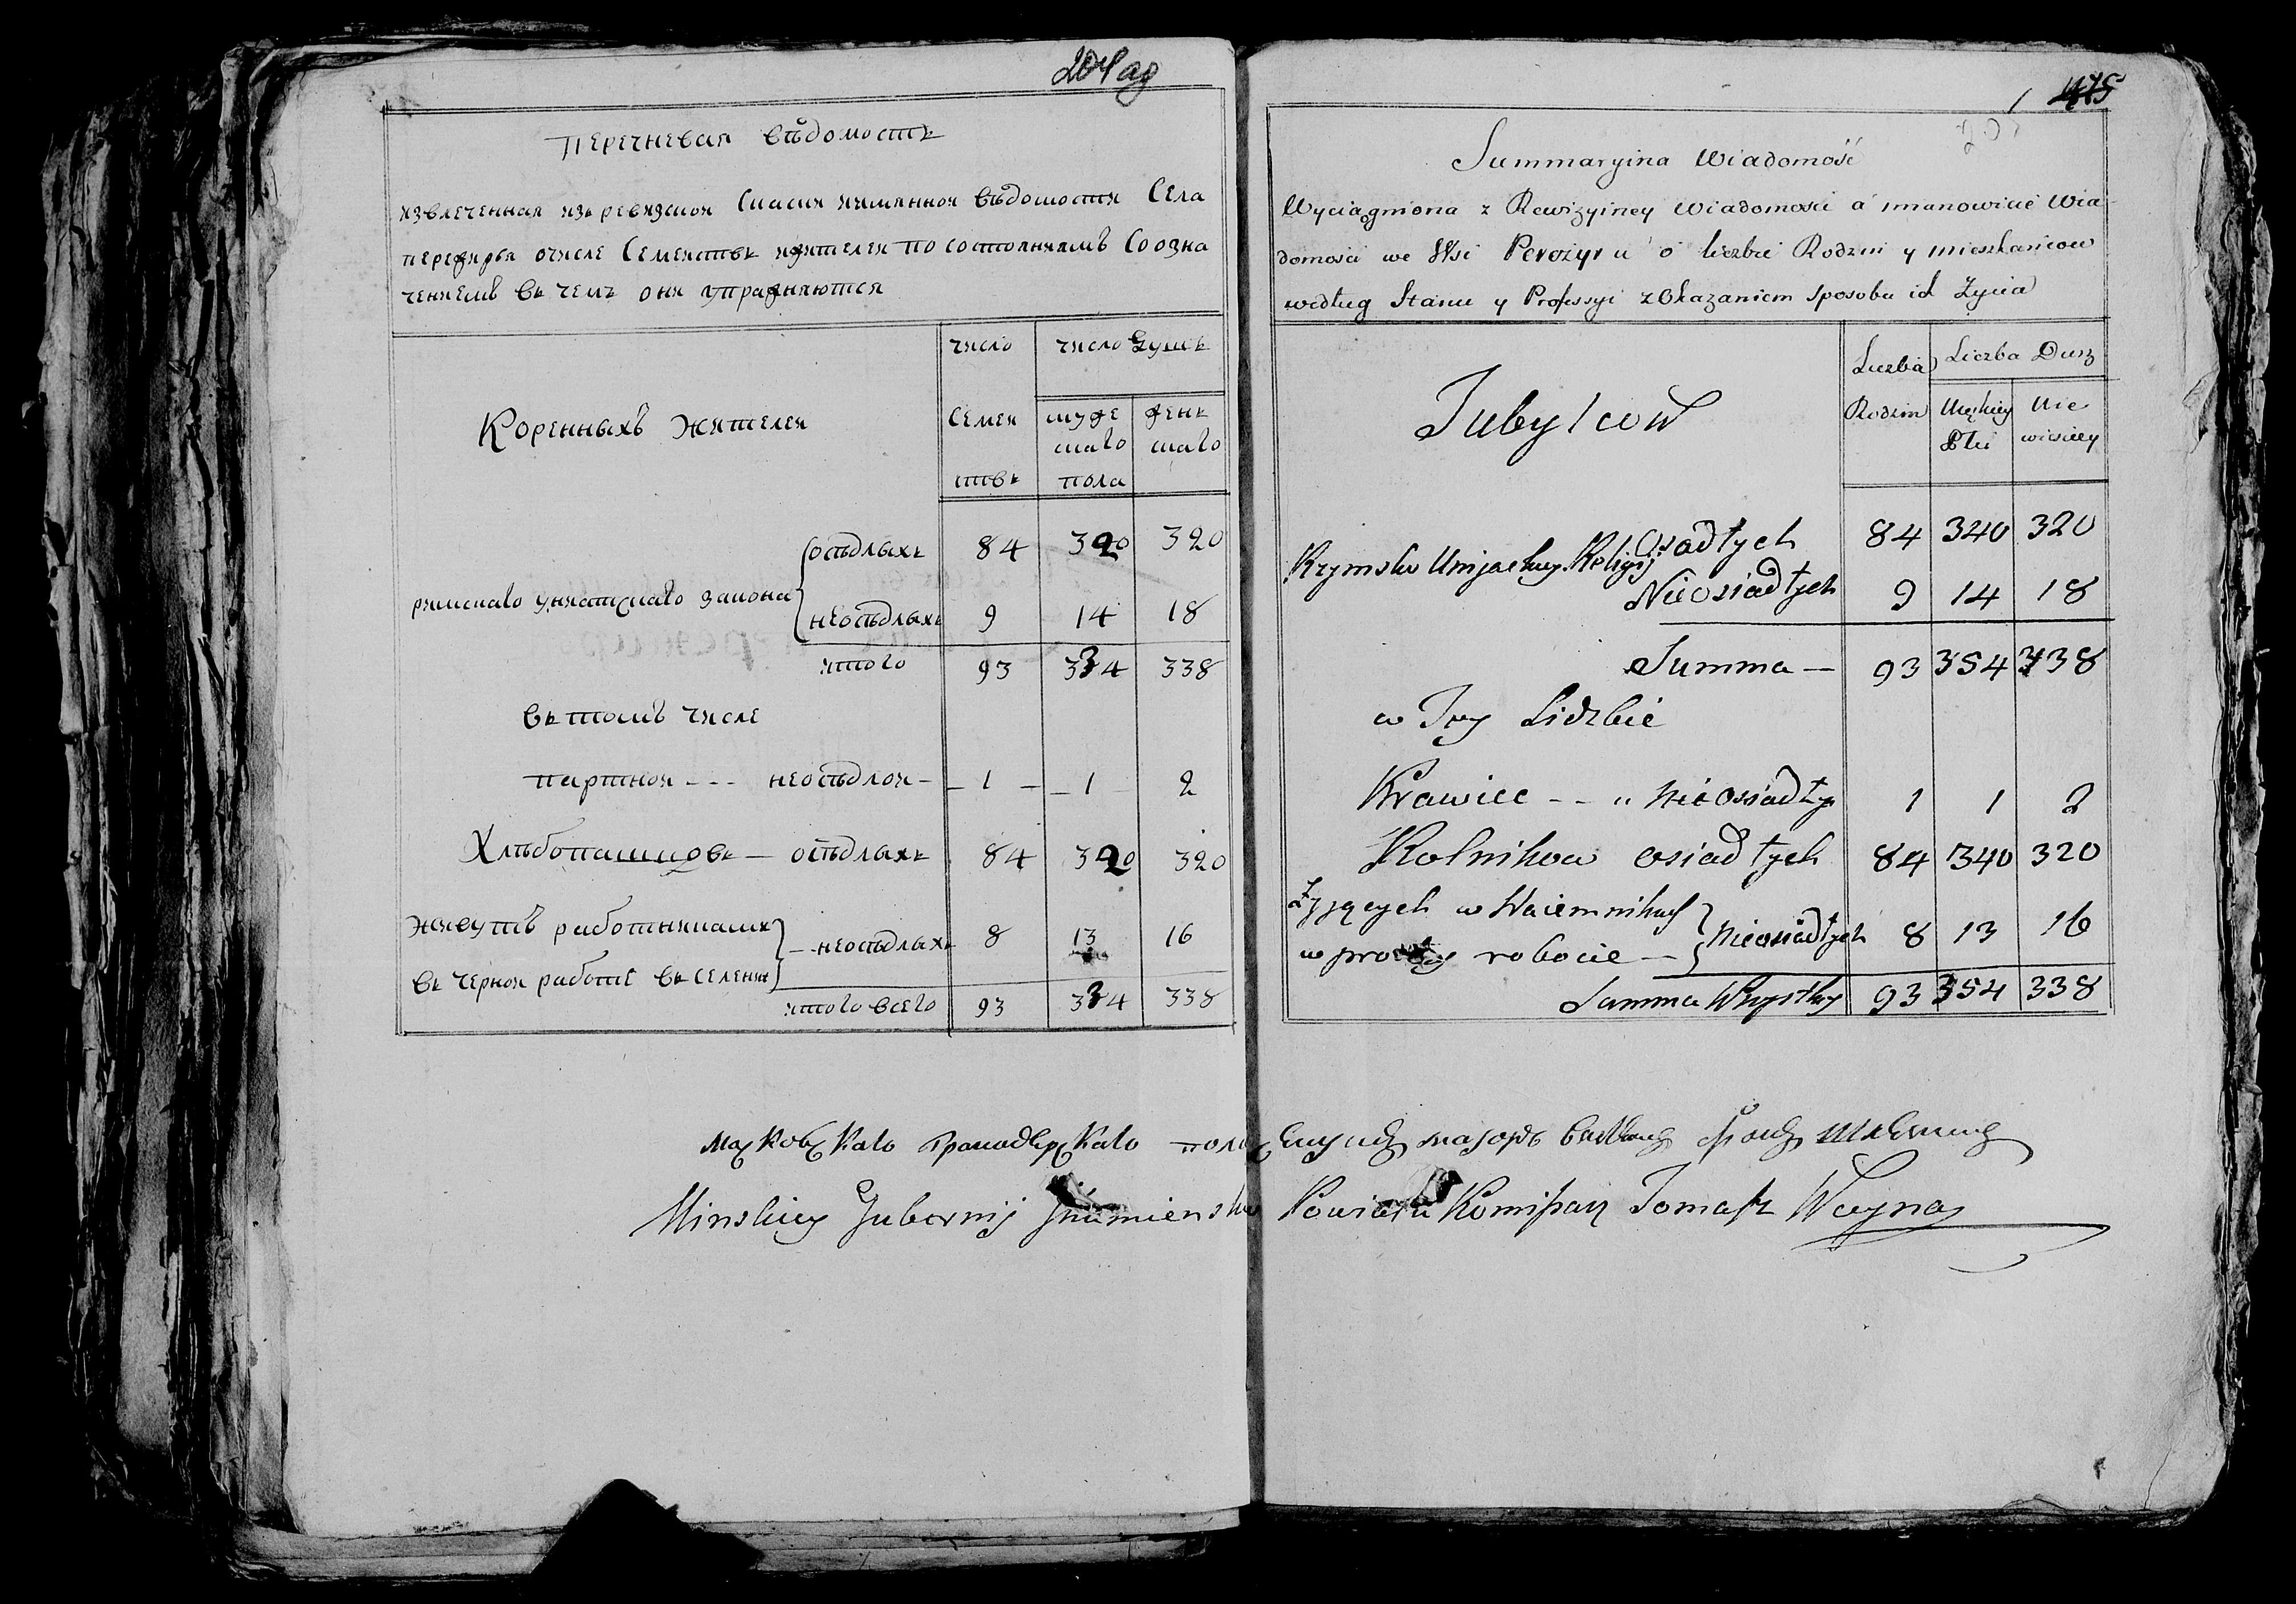 204 ад
Перечневая вѣдомость
извлеченная изъ ревизской Скаски имянной вѣдомости Села
Пережирья очисле Семействъ ижителей по состояниямъ Союзна
ченіемъ въ чемъ они упражняются
Коренныхъ жителей
число Семей ствъ
число душъ
муже скаго пола
жен скаго
римскаго униатскаго закона
осѣдлыхъ 84 320 320
неосѣдлыхъ 9 14 18
итого 93 334 338
въ томъ числе
партной - - - неосѣдлой - 1 - 1 2
Хлѣбопашцовъ — осѣдлыхъ 84 320 320
живутъ работниками
въ черной работѣ въ селении
неосѣдлыхъ 8 13 16
итого всего 93 334 338
475
Summaryina Wiadomość
Wyciągniona z Rewizyiney Wiadomości a imanowicie Wia
domości we Wsi Perezyru o liczbie Rodzin y mieszkancow
według Stanu y Professyi z Okazaniem sposobu ich Zycia
Tubylcow
Liczba Rodzin
Liczba Dusz
Męskiey Płci
Nie wiesciey
Rzymsko Unijackiey Religij
Osadłych 84 340 320
Nieosiadłych 9 14 18
Summa — 93 354 338
w Tey Lidzbie
Krawiec - - " nieosiadły 1 1 2
Rolnikow osiadłych 84 340 320
Zyjących w Naiemnikach
w prostey robocie —
Nieosiadłych 8 13 16
Summa Wszystkiey 93 354 338
Московскаго Гранодерскаго полку маіоръ
Minskiey Gubernij Jhumienskie Powiatu Komissarz Tomasz Woyna